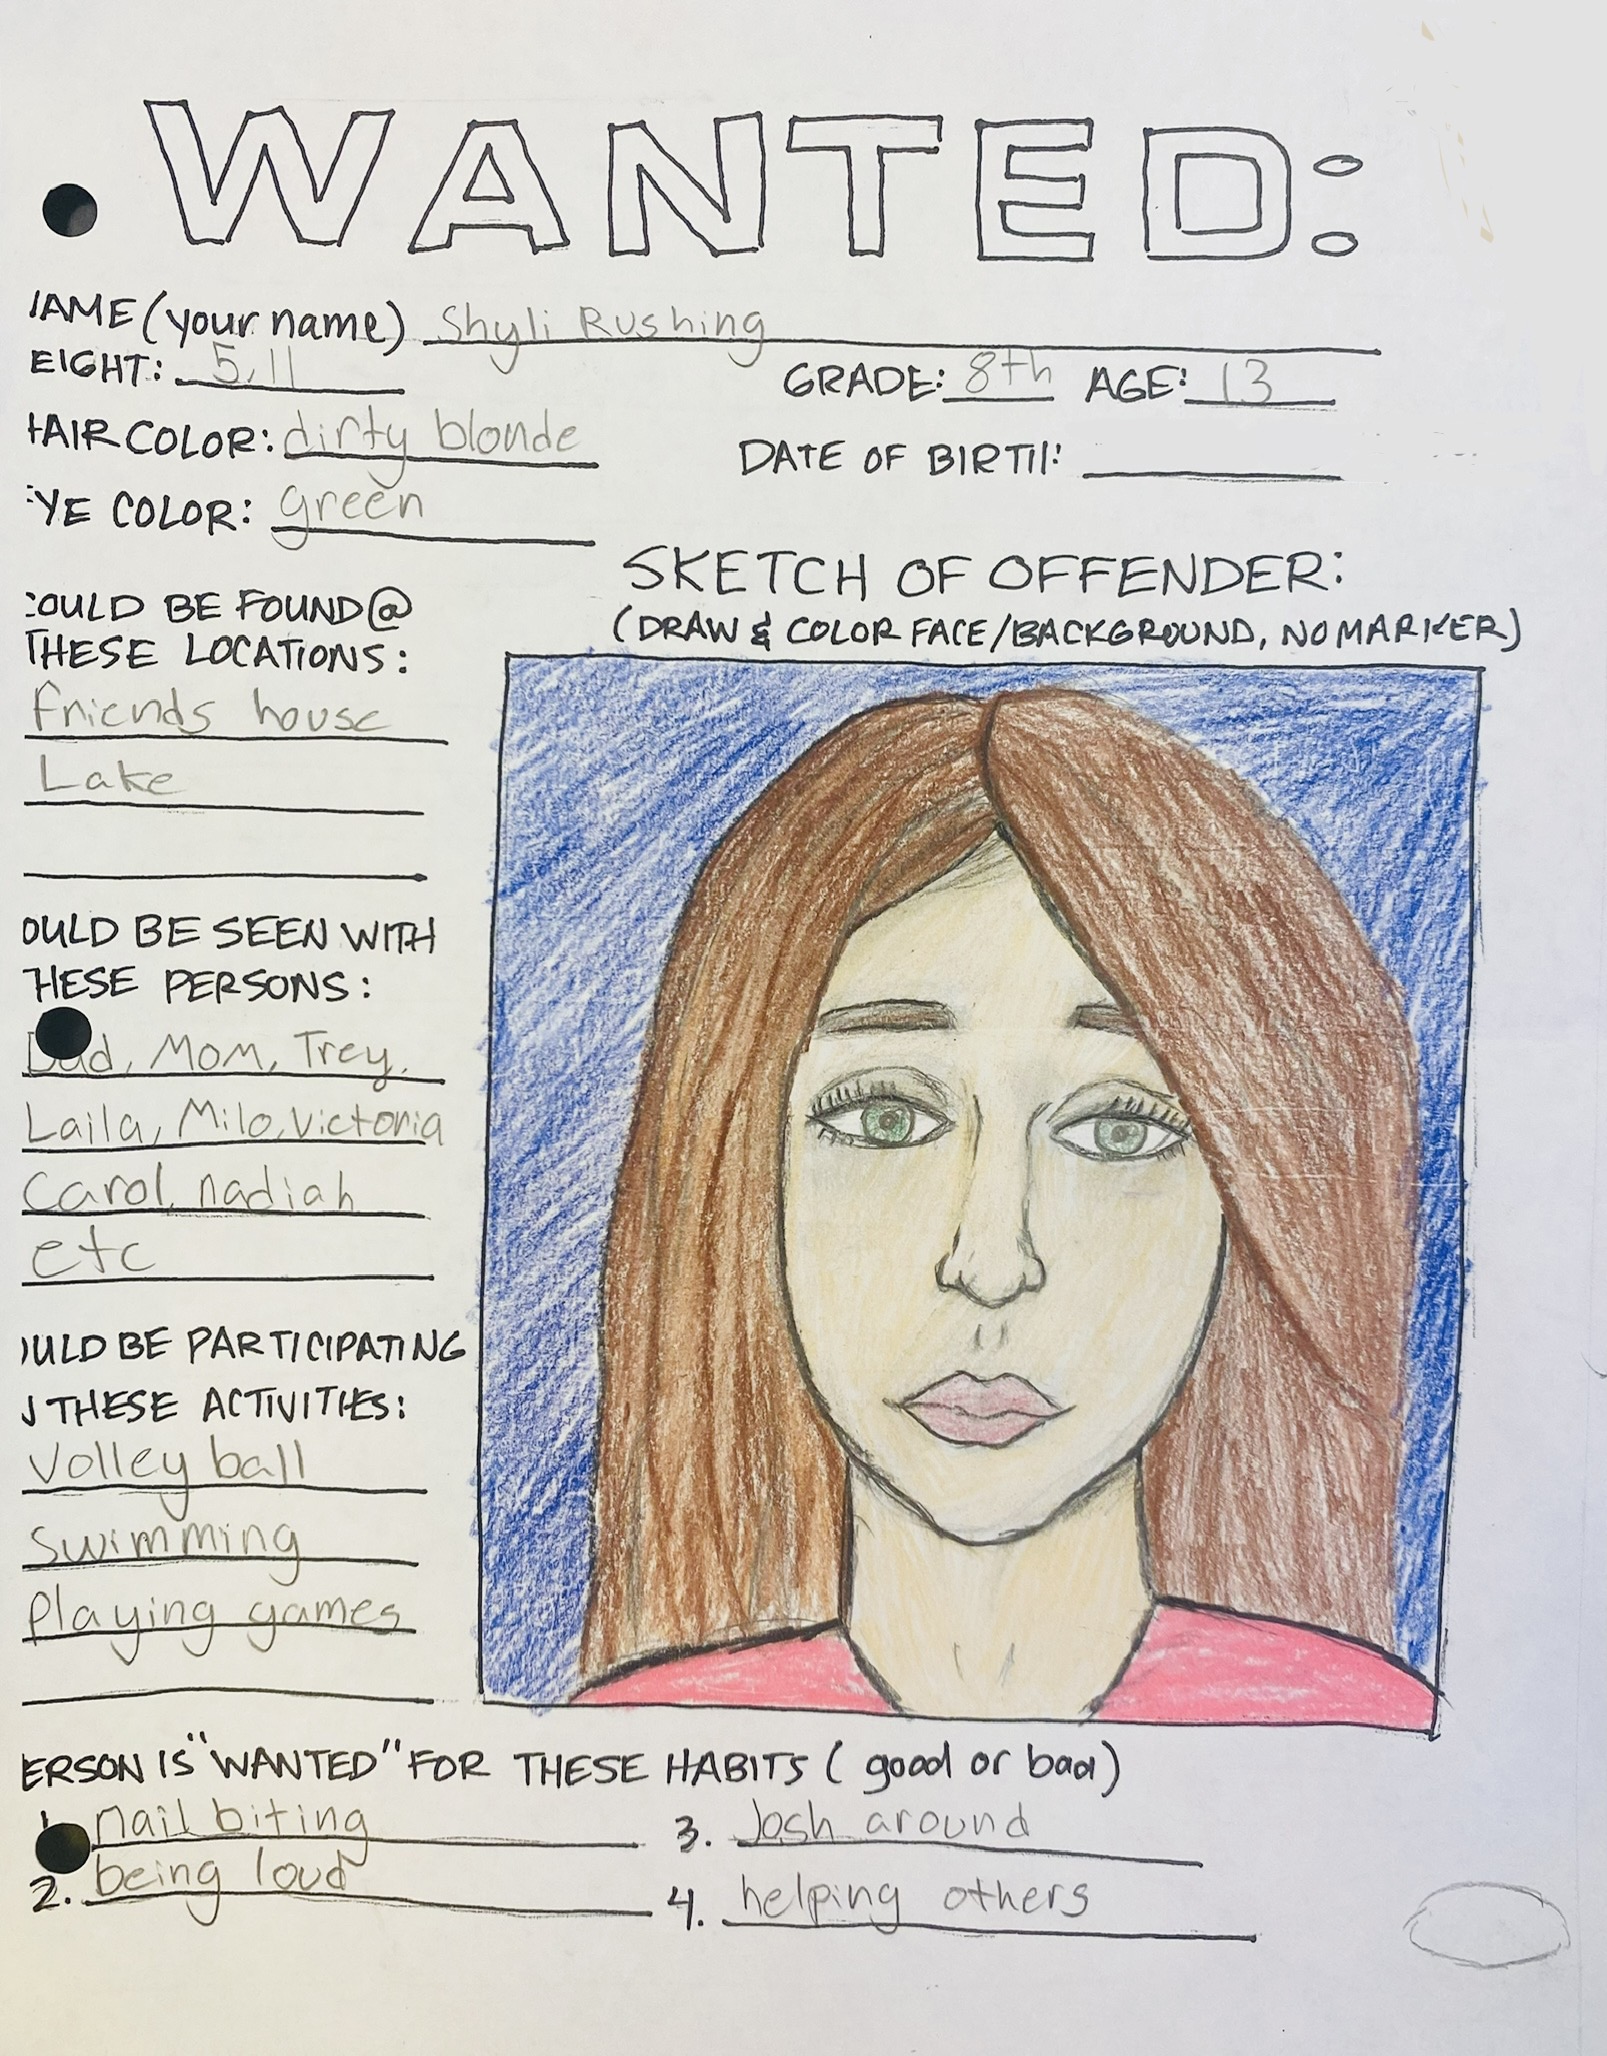 WANTED:
NAME (your name) Shyli Rushing
EIGHT: 5,11 GRADE: 8th AGE: 13
HAIR COLOR: dirty blonde DATE OF BIRTH:
EYE COLOR: green
SKETCH OF OFFENDER:
(DRAW & COLOR FACE/BACKGROUND, NO MARKER)
COULD BE FOUND @
THESE LOCATIONS:
friends house
Lake
OULD BE SEEN WITH
THESE PERSONS:
Dad, Mom, Trey,
Laila, Milo, Victoria
Carol, nadiah
etc
OULD BE PARTICIPATING
N THESE ACTIVITIES:
Volley ball
Swimming
Playing games
ERSON IS "WANTED" FOR THESE HABITS ( good or bad)
1. nail biting 3. Josh around
2. being loud 4. helping others